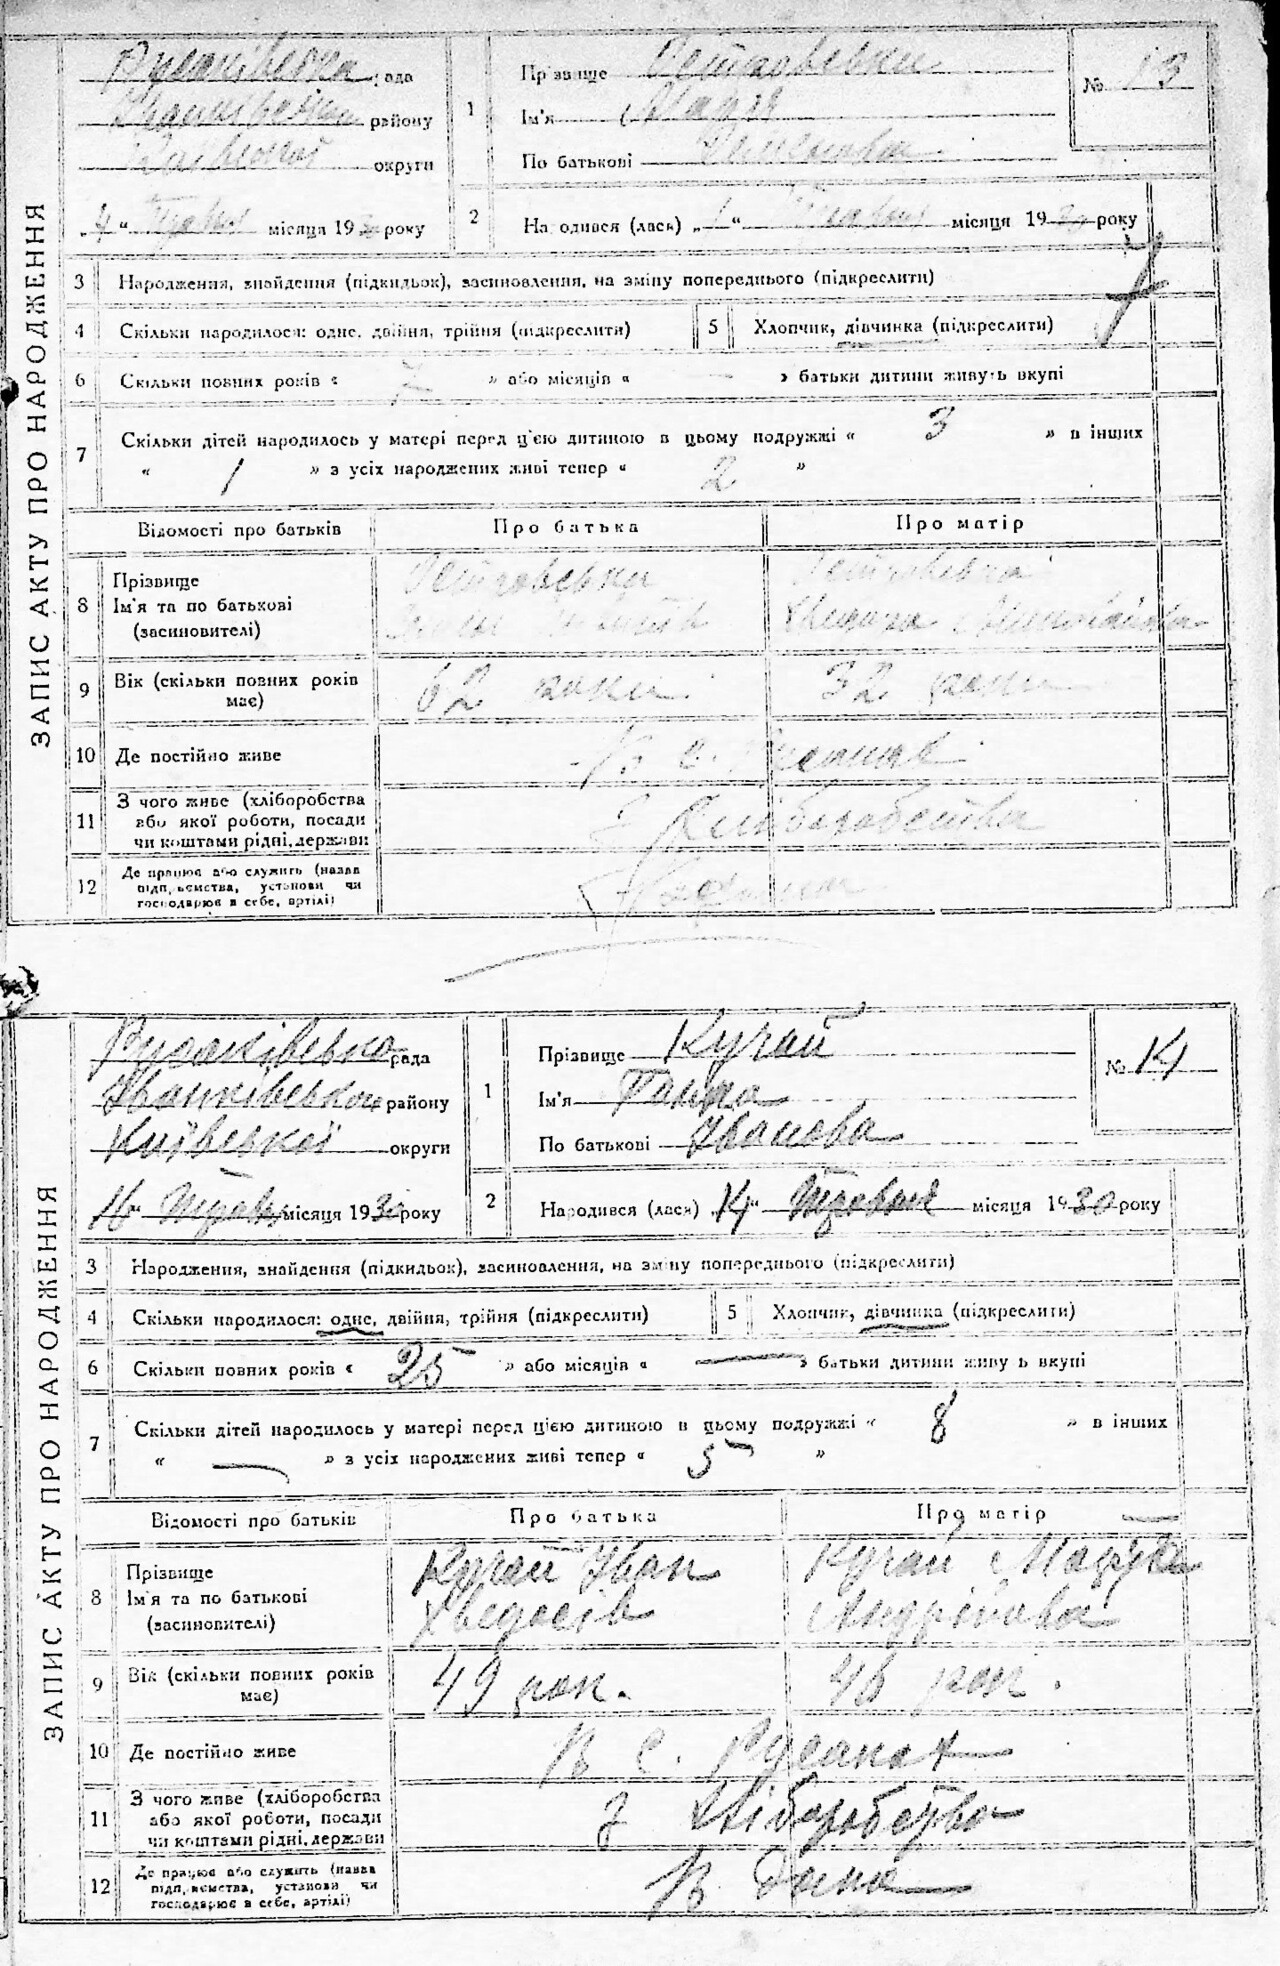 ЗАПИС АКТУ ПРО НАРОДЖЕННЯ
Русаківська рада
Іванківського району
Київської округи
„4“ Травня місяця 1930 року
1 Прізвище Петровська
Ім'я Надя
По батькові
№ 13
2 Народився (лася) „1“ Травня місяця 1930 року
3 Народження, знайдення (підкидьок), засиновлення, на зміну попереднього (підкреслити)
4 Скільки народилося: одне, двійня, трійня (підкреслити)
5 Хлопчик, дівчинка (підкреслити)
6 Скільки повних років « 7 » або місяців « — » батьки дитини живуть вкупі
7 Скільки дітей народилось у матері перед цією дитиною в цьому подружжі « 3 » в інших
« 1 » з усіх народжених живі тепер « 2 »
Відомості про батьків Про батька Про матір
8 Прізвище
Ім'я та по батькові
(засиновителі)
Петровський
Петровська
9 Вік (скільки повних років
має)
62 роки 32 роки
10 Де постійно живе В с. Русаках
11 З чого живе (хліборобства
або якої роботи, посади
чи коштами рідні, держави
З Хліборобства
12 Де працює або служить (назва
підприємства, установи чи
господарює в себе, артілі)
ЗАПИС АКТУ ПРО НАРОДЖЕННЯ
Русаківська рада
Іванківського району
Київської округи
16 Травня місяця 1930 року
1 Прізвище Кучай
Ім'я Ганна
По батькові Іванова
№ 14
2 Народився (лася) „14“ Травня місяця 1930 року
3 Народження, знайдення (підкидьок), засиновлення, на зміну попереднього (підкреслити)
4 Скільки народилося: одне, двійня, трійня (підкреслити)
5 Хлопчик, дівчинка (підкреслити)
6 Скільки повних років « 25 » або місяців « — » батьки дитини живуть вкупі
7 Скільки дітей народилось у матері перед цією дитиною в цьому подружжі « 8 » в інших
« — » з усіх народжених живі тепер « 5 »
Відомості про батьків Про батька Про матір
8 Прізвище
Ім'я та по батькові
(засиновителі)
Кучай Іван
Хведосів
Кучай
Андріївна
9 Вік (скільки повних років
має)
49 рок. 46 рок.
10 Де постійно живе В с. Русаках
11 З чого живе (хліборобства
або якої роботи, посади
чи коштами рідні, держави
З Хліборобства
12 Де працює або служить (назва
підприємства, установи чи
господарює в себе, артілі)
В дома